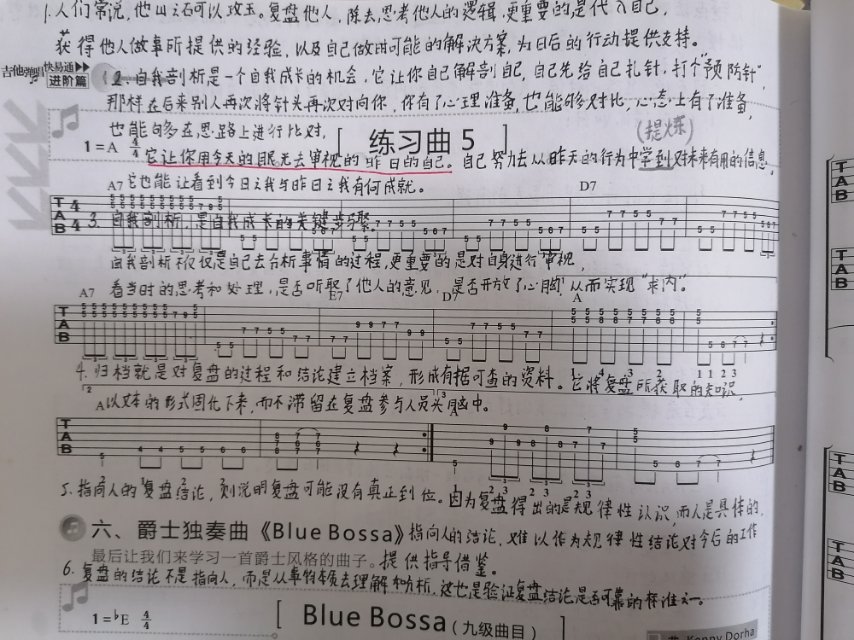 1.人们常说,他山之石可以攻玉。复盘他人,除去思考他人的逻辑,更重要的是代入自己,
获得他人做事所提供的经验,以及自己做时可能的解决方案,为日后的行动提供支持。
吉他弹唱快易通▶▶
进阶篇
2.自我剖析是一个自我成长的机会,它让你自己解剖自己,自己先给自己扎针,打个"预防针",
那样在后来别人再次将针头再次对向你,你有了心理准备,也能够对比,心态上有了准备,
也能够在思路上进行比对,
[ 练习曲 5 ]
(提炼)
1=A 4/4
它让你用今天的眼光去审视的昨日的自己。自己努力去从昨天的行为中学到对未来有用的信息。
它也能让看到今日之我与昨日之我有何成就。
A7 D7
3.自我剖析,是自我成长的关键步骤。
自我剖析不仅仅是自己去分析事情的过程,更重要的是对自身进行审视,
看当时的思考和处理,是否听取了他人的意见,是否开放了心胸,从而实现"求内"。
A7 E7 D7 A
4.归档就是对复盘的过程和结论建立档案,形成有据可查的资料。它将复盘所获取的知识,
以文本的形式固化下来,而不滞留在复盘参与人员头脑中。
A A
5.指向人的复盘结论,则说明复盘可能没有真正到位。因为复盘得出的是规律性认识,而人是具体的,
六、爵士独奏曲《Blue Bossa》
指向人的结论,难以作为规律性结论对今后的工作
最后让我们来学习一首爵士风格的曲子。
提供指导借鉴。
6.复盘的结论不是指向人,而是从事物本质去理解和分析,这也是验证复盘结论是否可靠的标准之一。
1=♭E 4/4
[ Blue Bossa(九级曲目) ]
曲 Kenny Dorha